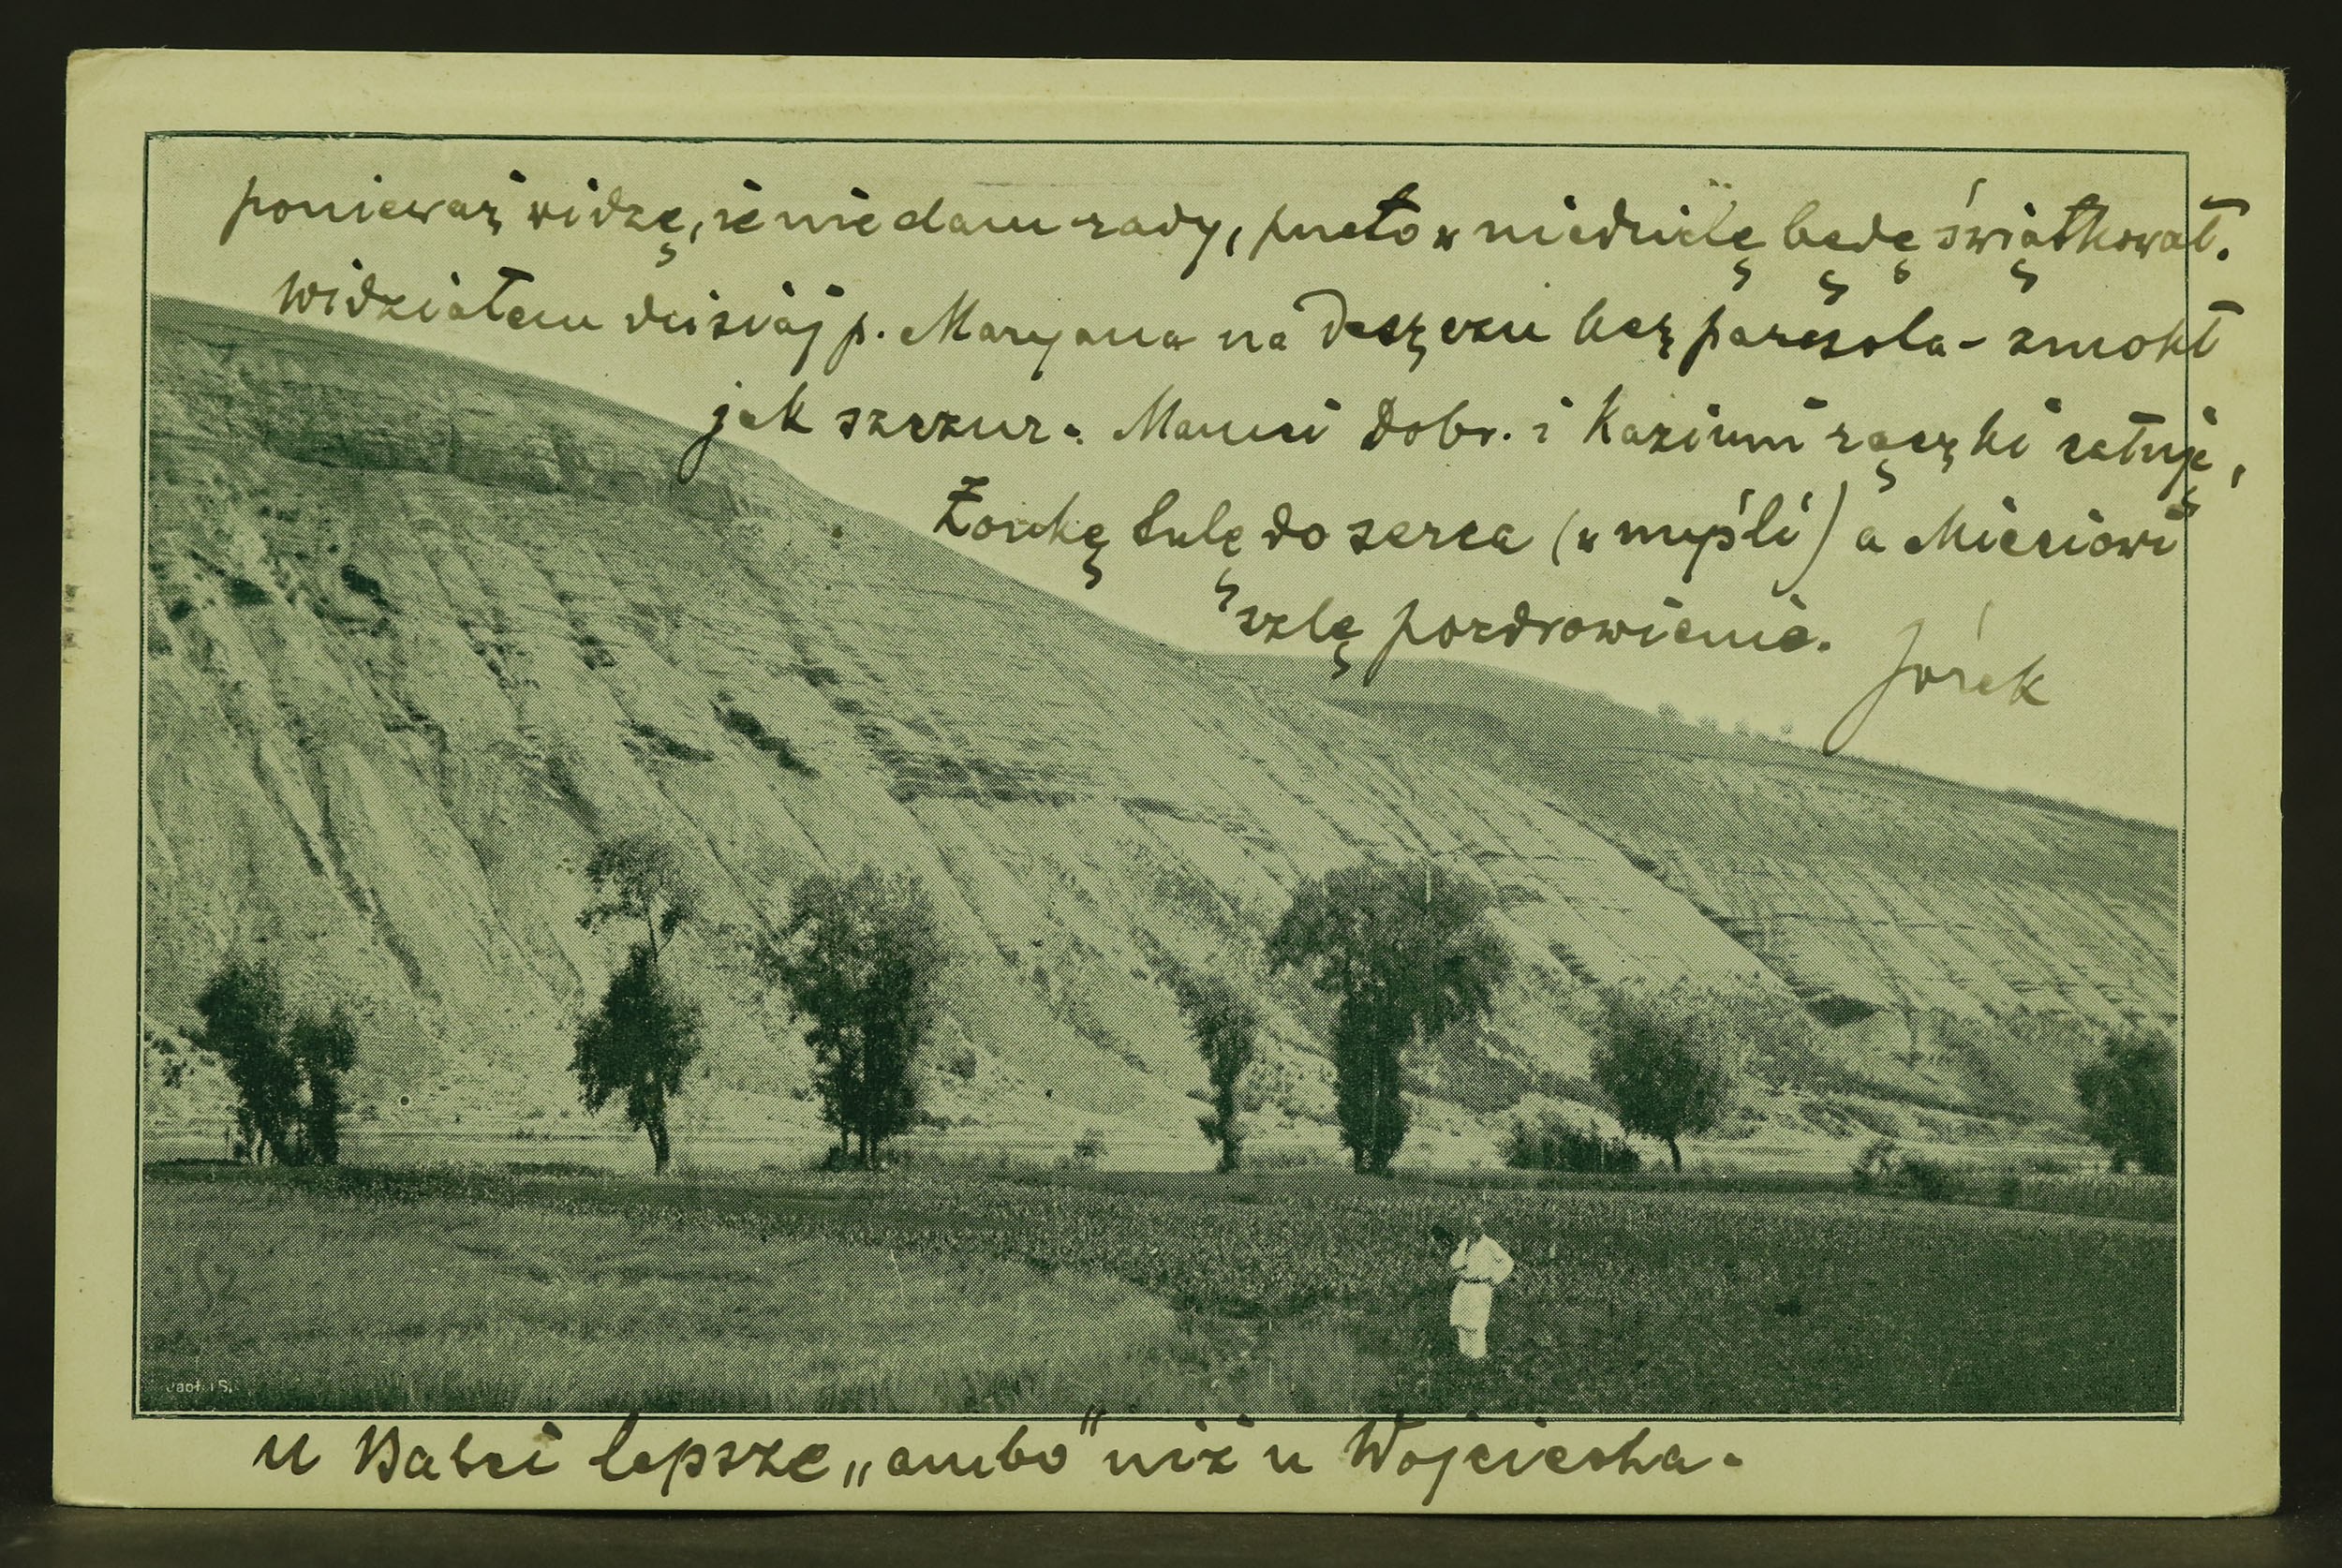 ponieważ widzę, że nie dam rady, przeto w niedzielę będę świątkował.
Widziałem dzisiaj p. Maryana na deszczu bez parasola - zmokł
jak szczur. Mamci Dobr. i Kazimi rączki całuję,
Zośkę tulę do serca (w myśli) a Mieciowi
szlę pozdrowienie. Józek
u Babci lepsze „ambo" niż u Wojciecha.